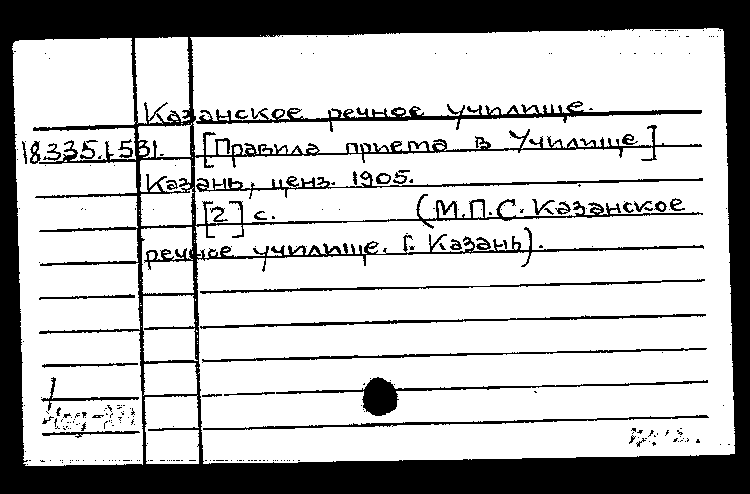 Казанское речное училище.
18.335.1.531. [Правила приема в Училище].
Казань, ценз. 1905.
[2] с. (М.П.С. Казанское
речное училище. Г. Казань).